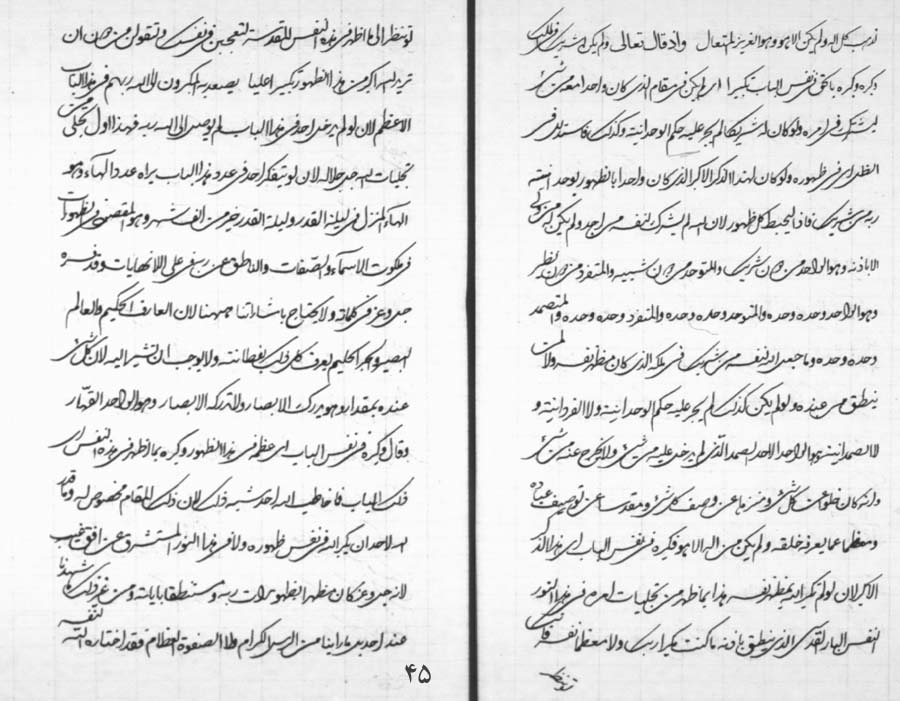 كل اله ولم يكن الا هو وهو العزيز المتعال واذ قال تعالى ولم يكن له شريك في الملك
وكبره تكبيرا في نفس الباب تكبيرا اى لم يكن في مقام الذى كان واحدا معه من شئ
ليشترك في امره ولو كان له شريكا لم يجر عليه حكم الوحدانية وكذلك فاستدل في
الظل اى في ظهوره ولو كان لهذا الذكر الاكبر الذى كان واحدا بالظهور يوحد الله
ربه من شريك فاذا ليحيط كل ظهور لان الله لم يشرك لنفسه من احد ولم يكن له من
الا باذنه وهو الواحد من دون شريك والمتوحد من دون شبيه والمتفرد من دون نظير
وهو الواحد وحده وحده والمتوحد وحده وحده والمتفرد وحده وحده والمتصمد
وحده وحده وما جعل الله لنفسه من شريك في ملكه الذى كان مظهر نفسه ولا
ينطق من عنده ولو لم يكن كذلك لم يجر عليه حكم الوحدانية ولا الفردانية و
لا الصمدانية هو الواحد الاحد الصمد الذى لم يدخل عليه من شئ ولا يخرج عنه من شئ
وانه كان خلوا عن كل شئ ومنزها عن وصف كل شئ ومقدسا عن توصيف عباده
ومعظما عما يعرفه خلقه ولم يكن من اله الا هو فكبره في نفس الباب اى هذا الذكر
الاكبر لان لو لم تكبر الله بمظهر نفسه هذا بما ظهر من تجليات امره في هذا النور
النفس القدسى الذى ينطق باذنه ما كنت مكبرا ربك ولا معظما نفسه فانك
لو تنظر
لو تنظر الى ما اظهر في هذه النفس المقدسة لتعجبن في نفسك ولتقولن من دون ان
تريد الله اكبر من هذا الظهور تكبيرا عليا يصعد به المكبرون الى الله ربهم في هذا الباب
الاعظم لان لو لم يدخل احد في هذا الباب لم يوصل الى الله ربه فهذا اول تجلى من
تجليات الله جل جلاله لان لو يتفكر احد في عدد هذا الباب يراه عدد الهاء وهو
الهاء المنزل في ليلة القدر وليلة القدر خير من الف شهر وهو المقضى في ظهورات
في ملكوت الاسماء والصفات والناطق عن ربه على اللانهايات وقد فسره
جل وعز في كلماته ولا يحتاج باشاراتنا هيهنا لان العارف الحكيم والعالم
البصير والخبير الحليم يعرف كل ذلك بفطانته ولا يوجب ان نشير اليه لان كل شئ
عنده بمقدار وهو يدرك الابصار ولا تدركه الابصار وهو الواحد القهار
وقال وكبره في نفس الباب اى عظم في هذا الظهور وكبره بما ظهر في هذه النفس اى
ذلك الباب فما خاطب الله احد شبه ذلك لان ذلك المقام مخصوص له وما قدر
الله لاحد ان يكبر الله في نفس ظهوره الا في هذا النور المستشرق عن افق الغيب
لانه جل وعز كان مظهرا لظهورات ربه ومستنطقا بآياته ومن غير ذلك ما شهدنا
عند احد بل ما راينا من الرسل الكرام ولا الصفوة العظام فقد اختاره الله لنفسه
۴۵